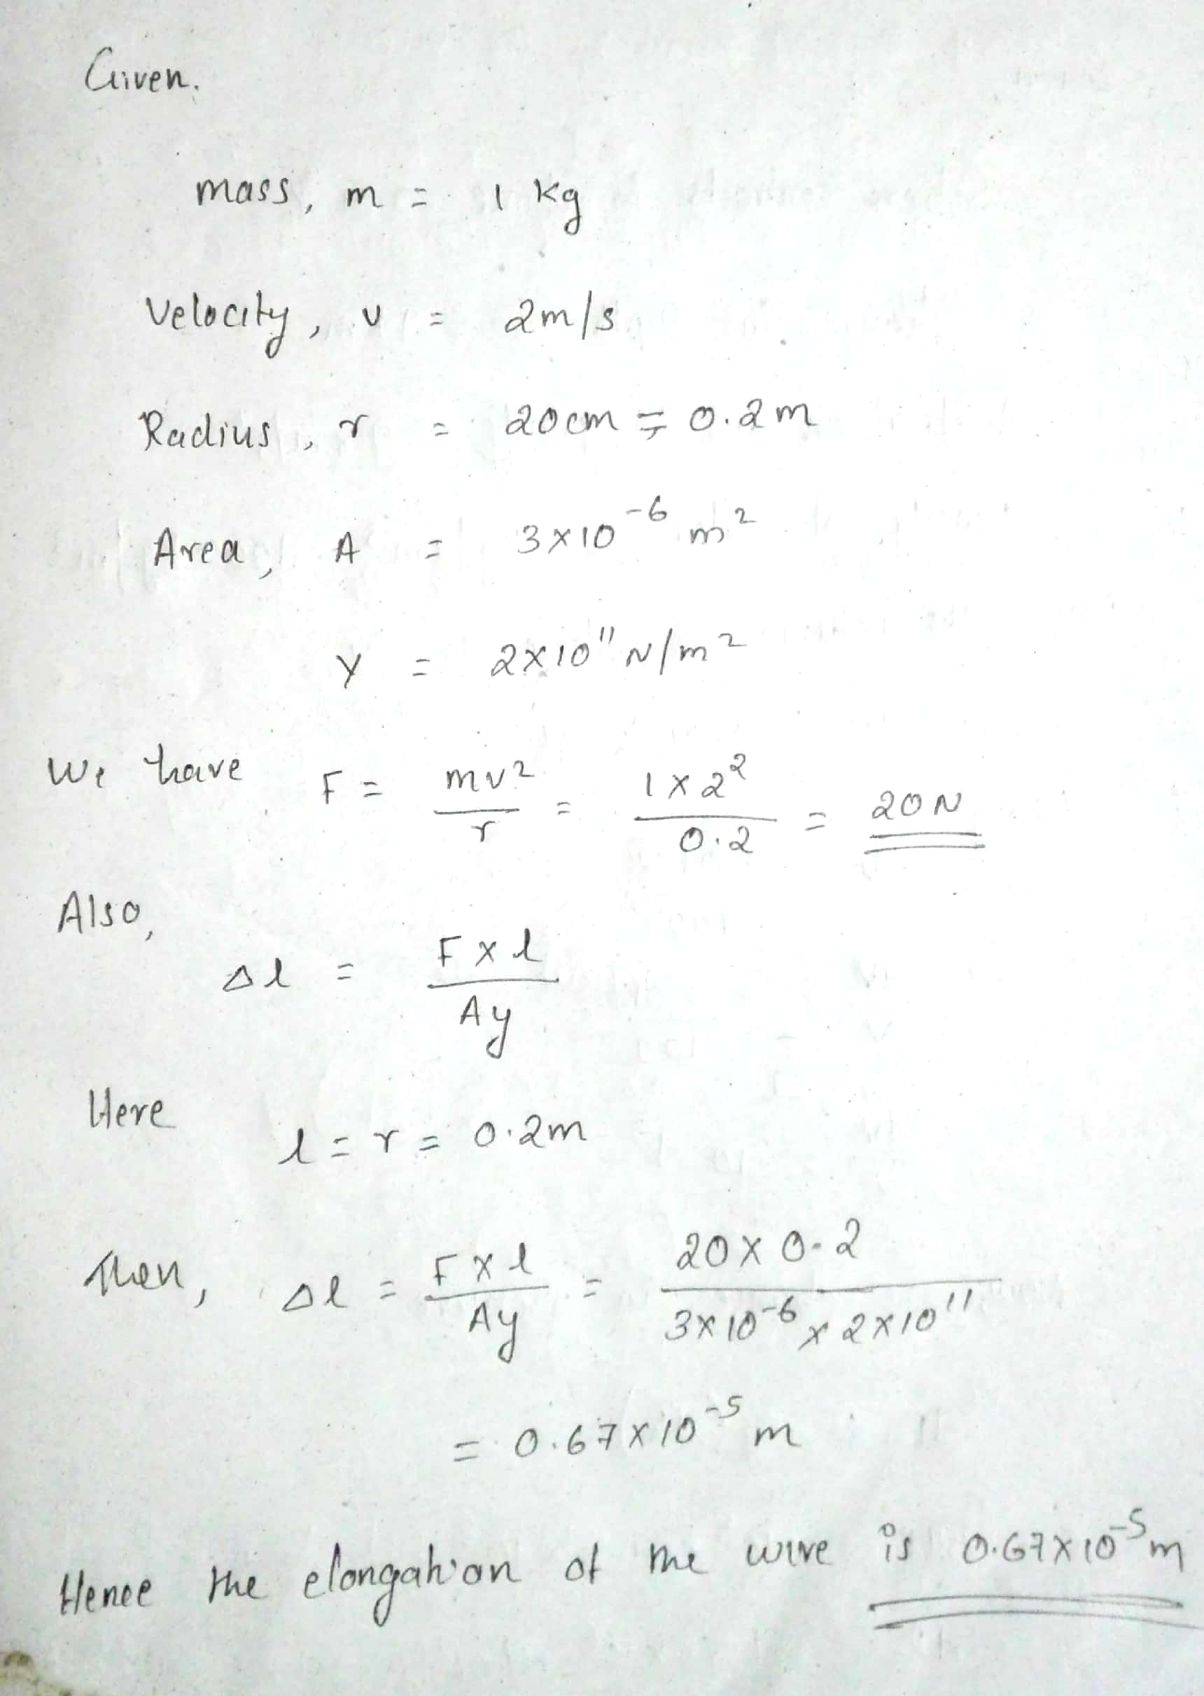 Given.
mass, m = 1 kg
Velocity, v = 2m/s
Radius, r = 20cm = 0.2m
Area, A = 3×10⁻⁶ m²
Y = 2×10¹¹ N/m²
We have F = mv²/r = 1×2²/0.2 = 20N
Also,
Δl = F×l/Ay
Here
l = r = 0.2m
Then, Δl = F×l/Ay = 20×0.2/3×10⁻⁶×2×10¹¹
= 0.67×10⁻⁵ m
Hence the elongation of the wire is 0.67×10⁻⁵m